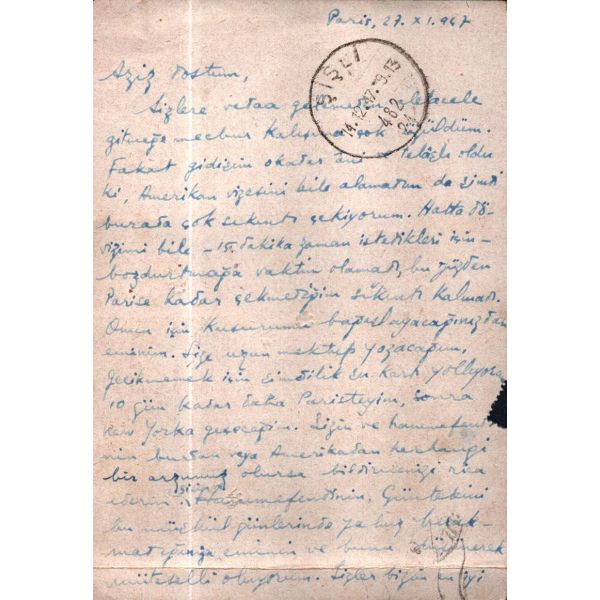 Paris, 27. XI. 947
ŞİŞLİ
14.12.47.*9.15
482
24
Aziz dostum,
Sizlere vedaa gelemeden acele
gitmeğe mecbur kalışıma çok üzüldüm.
Fakat gidişim okadar ani ve telâşlı oldu
ki, Amerikan vizesini bile alamadım da şimdi
burada çok sıkıntı çekiyorum. Hatta dö-
vizimi bile - 15 dakika zaman istedikleri için -
bozdurtmağa vaktim olamadı, bu yüzden
Parise kadar çekmediğim sıkıntı kalmadı.
Onun için kusurumu bağışlayacağınızdan
eminim. Size uzun mektup yazacağım,
gecikmemek için şimdilik bu kartı yolluyorum
10 gün kadar daha Paristeyim, sonra
New Yorka geçeceğim. Sizin ve hanımefendi
nin burdan veya Amerikadan herhangi
bir arzunuz olursa bildirmenizi rica
ederim. Hanımefendinin, Güntekini
bu müşkül günlerinde yalnız bırak-
madığınıza eminim ve bunu düşünerek
müteselli oluyorum. Sizler bizim en iyi